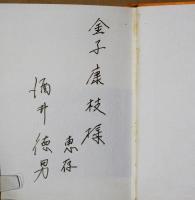 金子康枝様
恵存
酒井徳男